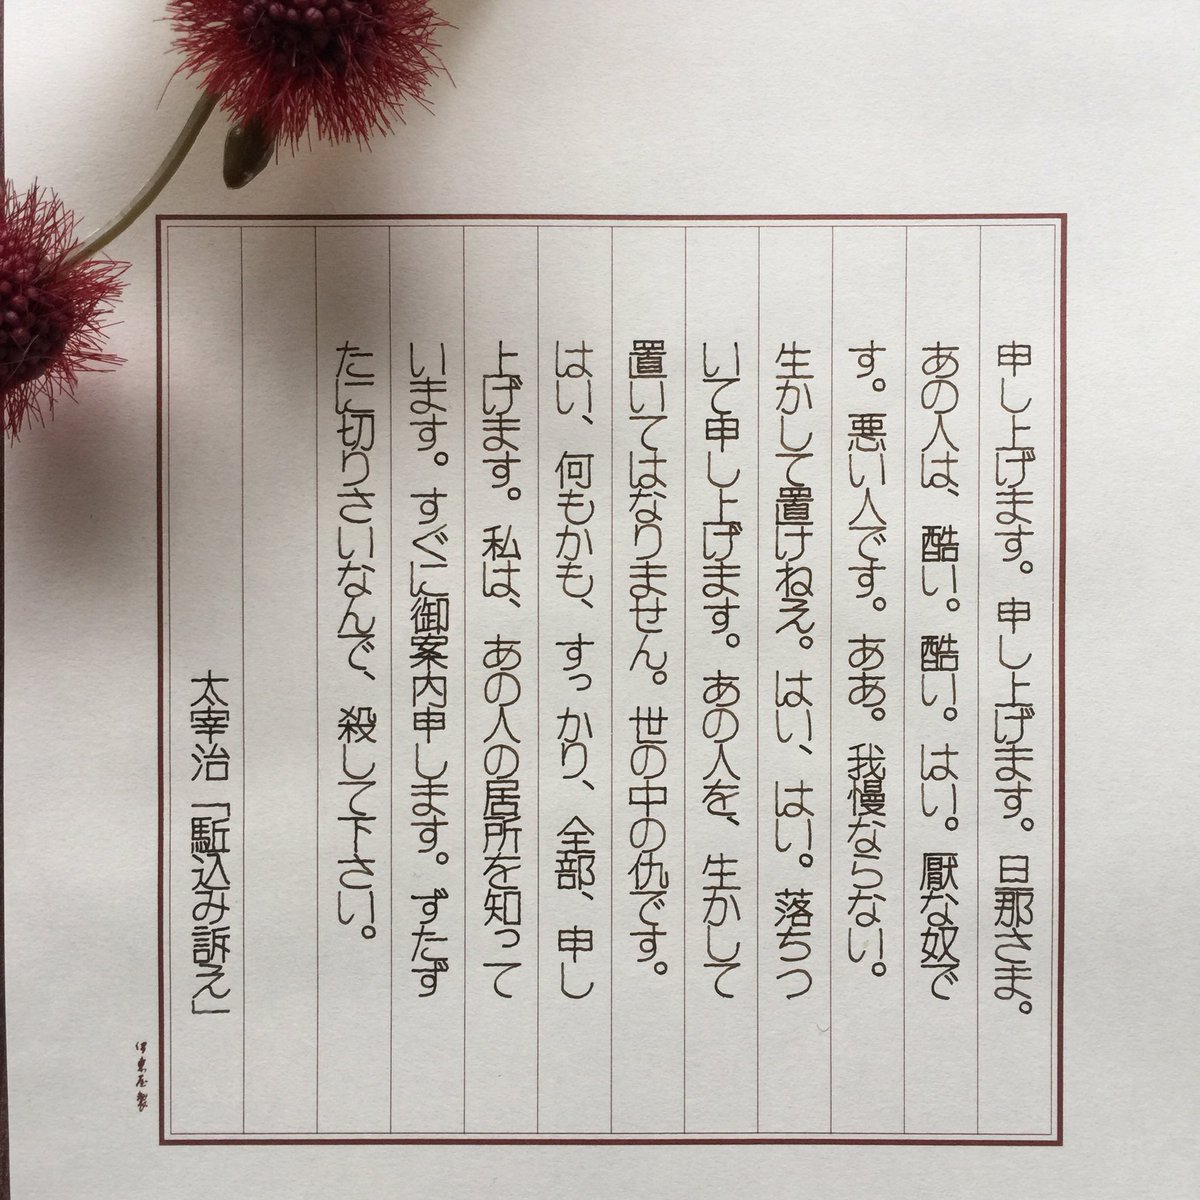 申し上げます。申し上げます。旦那さま。
あの人は、酷い。酷い。はい。厭な奴で
す。悪い人です。ああ。我慢ならない。
生かして置けねえ。はい、はい。落ちつ
いて申し上げます。あの人を、生かして
置いてはなりません。世の中の仇です。
はい、何もかも、すっかり、全部、申し
上げます。私は、あの人の居所を知って
います。すぐに御案内申します。ずたず
たに切りさいなんで、殺して下さい。
太宰治「駈込み訴え」
伊東屋製